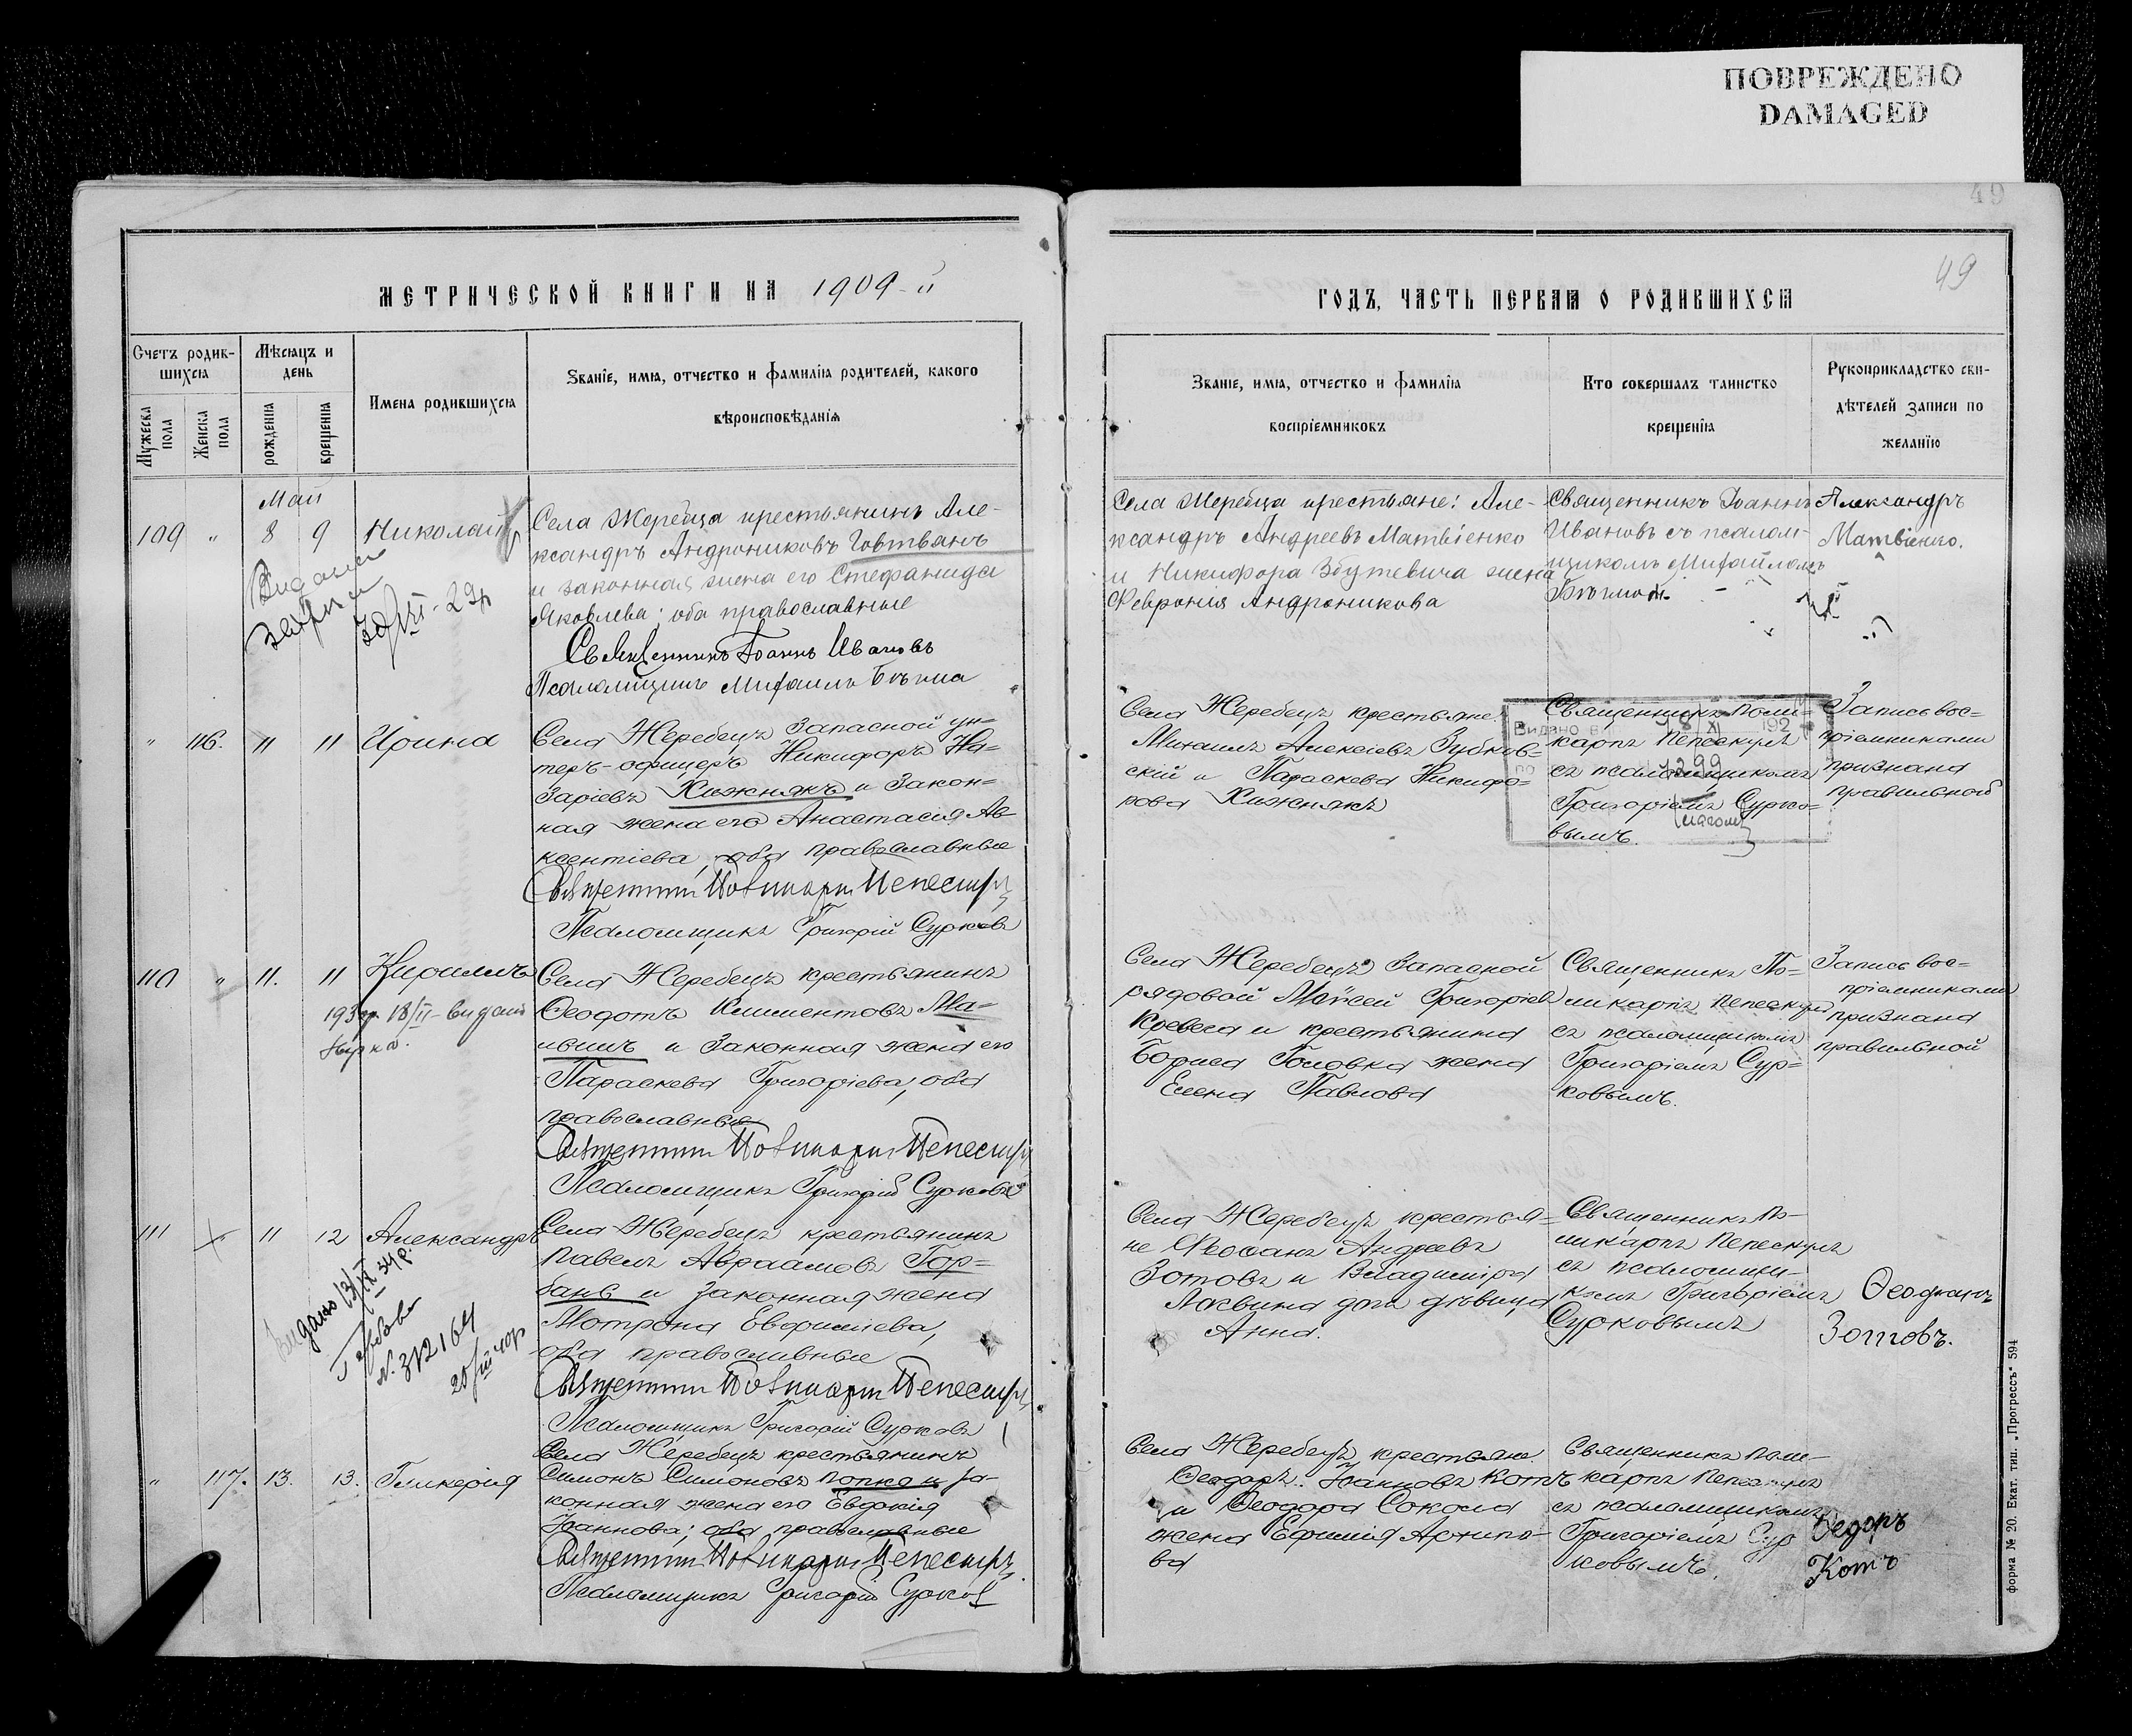 ПОВРЕЖДЕНО
DAMAGED
49
49
МЕТРИЧЕСКОЙ КНИГИ НА 1909-й
ГОДЪ, ЧАСТЬ ПЕРВАЯ О РОДИВШИХСЯ
Счетъ родив-
шихся
Мужеска пола
Женска пола
Мѣсяцъ и
день
рожденія
крещенія
Имена родившихся
Званіе, имя, отчество и фамилія родителей, какого
вѣроисповѣданія
Званіе, имя, отчество и фамилія
воспріемниковъ
Кто совершалъ таинство
крещенія
Рукоприкладство сви-
дѣтелей записи по
желанію
Май
109 " 8 9 Николай
Села Жеребца крестьянинъ Але-
ксандръ Андрониковъ Говтванъ
и законная жена его Стефанида
Яковлева; оба православные
Священникъ Іоаннъ Ивановъ
Псаломщикъ Михаилъ
Села Жеребца крестьяне: Але-
ксандръ Андреевъ Матвіенко
и Никифора Збутевича жена
Феврония Андроникова
Священникъ Іоаннъ
Ивановъ съ псалом-
щикомъ Михаиломъ
Александръ
Матвіенко.
" 116. 11 11 Ирина
Села Жеребецъ Запасной ун-
теръ-офицеръ Никифоръ На-
заріевъ Хижнякъ и Закон-
ная жена его Анастасія Ав-
ксентіева, оба православные
Священникъ Поликарпъ Пепескулъ
Псаломщикъ Григорій Сурковъ
Села Жеребецъ крестьяне:
Михаилъ Алексіевъ Зубков-
скій и Параскева Никифо-
рова Хижнякъ
Священникъ Поли-
карпъ Пепескулъ
съ псаломщикомъ
Григоріемъ Сурко-
вымъ.
Видано 8 XI 192
1299
Запись вос-
пріемниками
признана
правильной
110 " 11. 11 Кириллъ
18/II- видано
Села Жеребецъ крестьянинъ
Феодотъ Климентовъ Ма-
ившъ и Законная жена его
Параскева Григоріева, оба
православные
Священникъ Поликарпъ Пепескулъ
Псаломщикъ Григорій Сурковъ
Села Жеребецъ Запасной
рядовой Моѵсей Григоріевъ
и крестьянина
Бориса Головка жена
Елена Павлова
Священникъ По-
ликарпъ Пепескулъ
съ псаломщикомъ
Григоріемъ Сур-
ковымъ.
Запись вос-
пріемниками
признана
правильной
111 11 12 Александръ
Видано 13/IX 34р.
N. 312164
Села Жеребецъ крестьянинъ
Павелъ Авраамовъ Гор-
бань и Законная жена
Мотрона Евфиміева,
оба православные
Священникъ Поликарпъ Пепескулъ
Псаломщикъ Григорій Сурковъ
Села Жеребецъ крестья-
не Феофанъ Андреевъ
Зотовъ и Владиміра
Логвина дочь дѣвица
Анна.
Священникъ По-
ликарпъ Пепескулъ
съ псаломщи-
комъ Григоріемъ
Сурковымъ
Феофанъ
Зотовъ.
" 117. 13. 13. Гликерія
Села Жеребецъ крестьянинъ
Симонъ Симоновъ Попка и за-
конная жена его Евдокія
Іоаннова; оба православные
Священникъ Поликарпъ Пепескулъ
Псаломщикъ Григорій Сурковъ
Села Жеребецъ крестьяне:
Феодоръ Іоанновъ Котъ
и Феодора Сокола
жена Ефимія Архипо-
ва
Священникъ Поли-
карпъ Пепескулъ
съ псаломщикомъ
Григоріемъ Сур
ковымъ.
Федоръ
Котъ
форма № 20. Екат. тип. „Прогрессъ“ 594